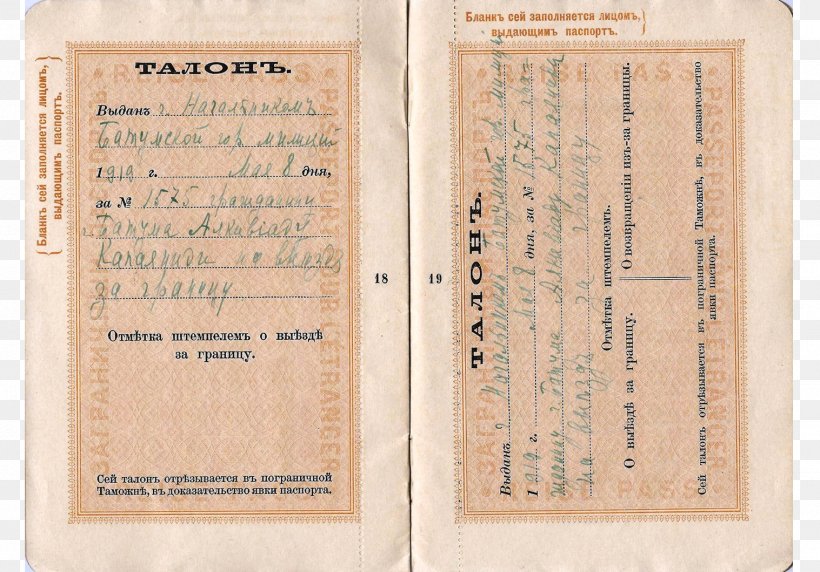 Бланкъ сей заполняется лицомъ,
выдающимъ паспортъ.
ТАЛОНЪ.
Выданъ г. Начальникомъ
Батумской гор. милиціи
1919 г. Мая 8 дня,
за № 1575 гражданину
Батума
на выѣздъ
за границу
Отмѣтка штемпелемъ о выѣздѣ
за границу.
Сей талонъ отрѣзывается въ пограничной
Таможнѣ, въ доказательство явки паспорта.
18
19
Бланкъ сей заполняется лицомъ,
выдающимъ паспортъ.
REISE PASS
ТАЛОНЪ.
Выданъ Начальникомъ Батумской гор. милиціи
1919 г. Мая 8 дня, за № 1575
г. Батума
на выѣздъ за границу
Отмѣтка штемпелемъ.
О выѣздѣ за границу. О возвращеніи изъ-за границы.
Сей талонъ отрѣзывается въ пограничной Таможнѣ, въ доказательство
явки паспорта.